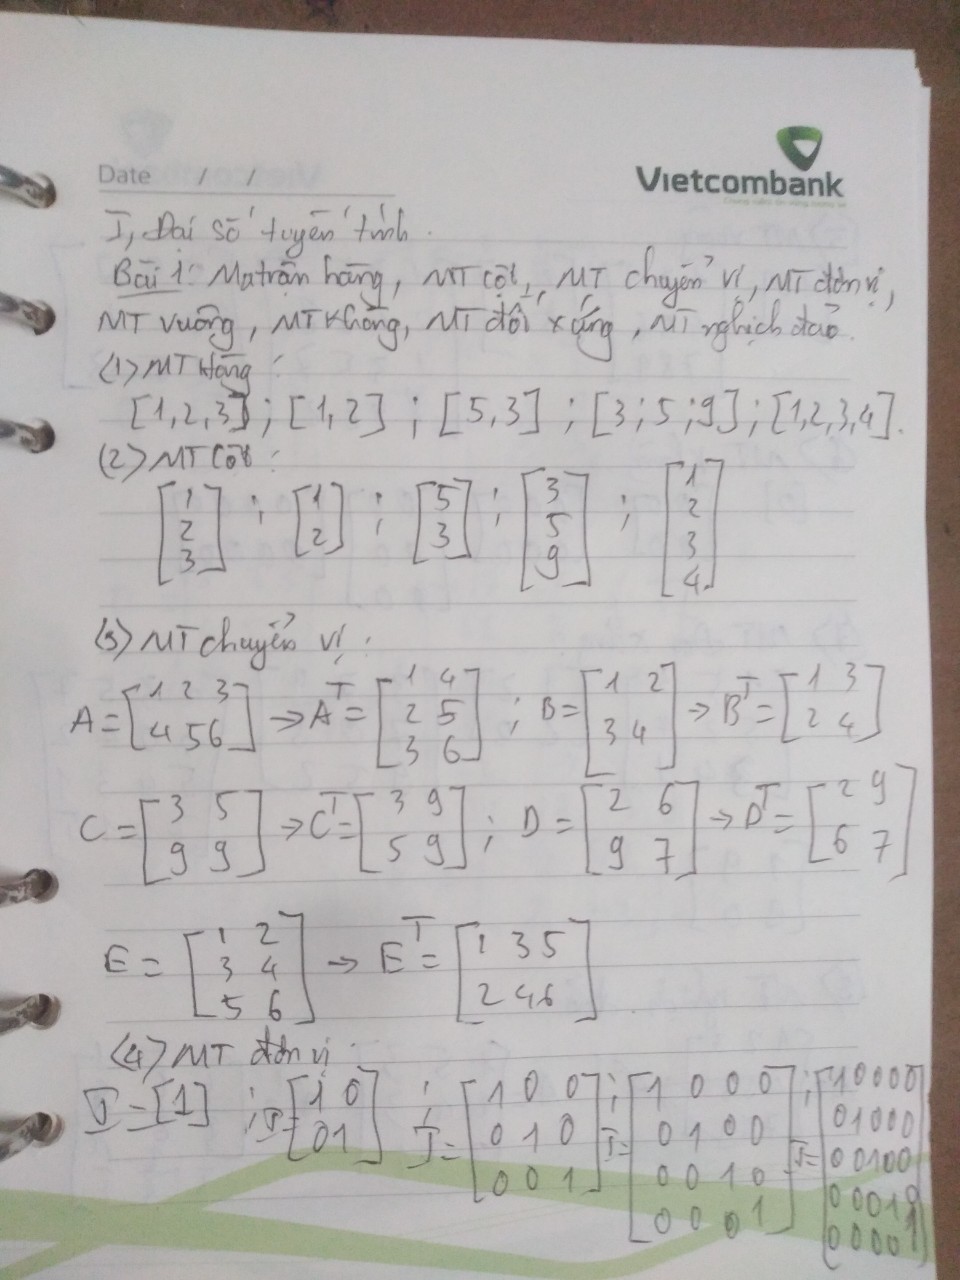 Date / /
Vietcombank
I, Đại số tuyến tính.
Bài 1: Ma trận hàng, MT cột, MT chuyển vị, MT đơn vị,
MT vuông, MT không, MT đối xứng, MT nghịch đảo.
(1) MT Hàng:
[1,2,3]; [1,2]; [5,3]; [3;5;9]; [1,2,3,4].
(2) MT Cột:
[1 ; [1 ; [5 ; [3 ; [1
2 2] 3] 5 2
3] 9] 3
4]
(3) MT chuyển vị:
A = [1 2 3 → A^T = [1 4 ; B = [1 2 → B^T = [1 3
4 5 6] 2 5 3 4] 2 4]
3 6]
C = [3 5 → C^T = [3 9 ; D = [2 6 → D^T = [2 9
9 9] 5 9] 9 7] 6 7]
E = [1 2 → E^T = [1 3 5
3 4 2 4 6]
5 6]
(4) MT đơn vị:
I = [1] ; I = [1 0 ; I = [1 0 0 ; I = [1 0 0 0 ; I = [1 0 0 0 0
0 1] 0 1 0 0 1 0 0 0 1 0 0 0
0 0 1] 0 0 1 0 0 0 1 0 0
0 0 0 1] 0 0 0 1 0
0 0 0 0 1]